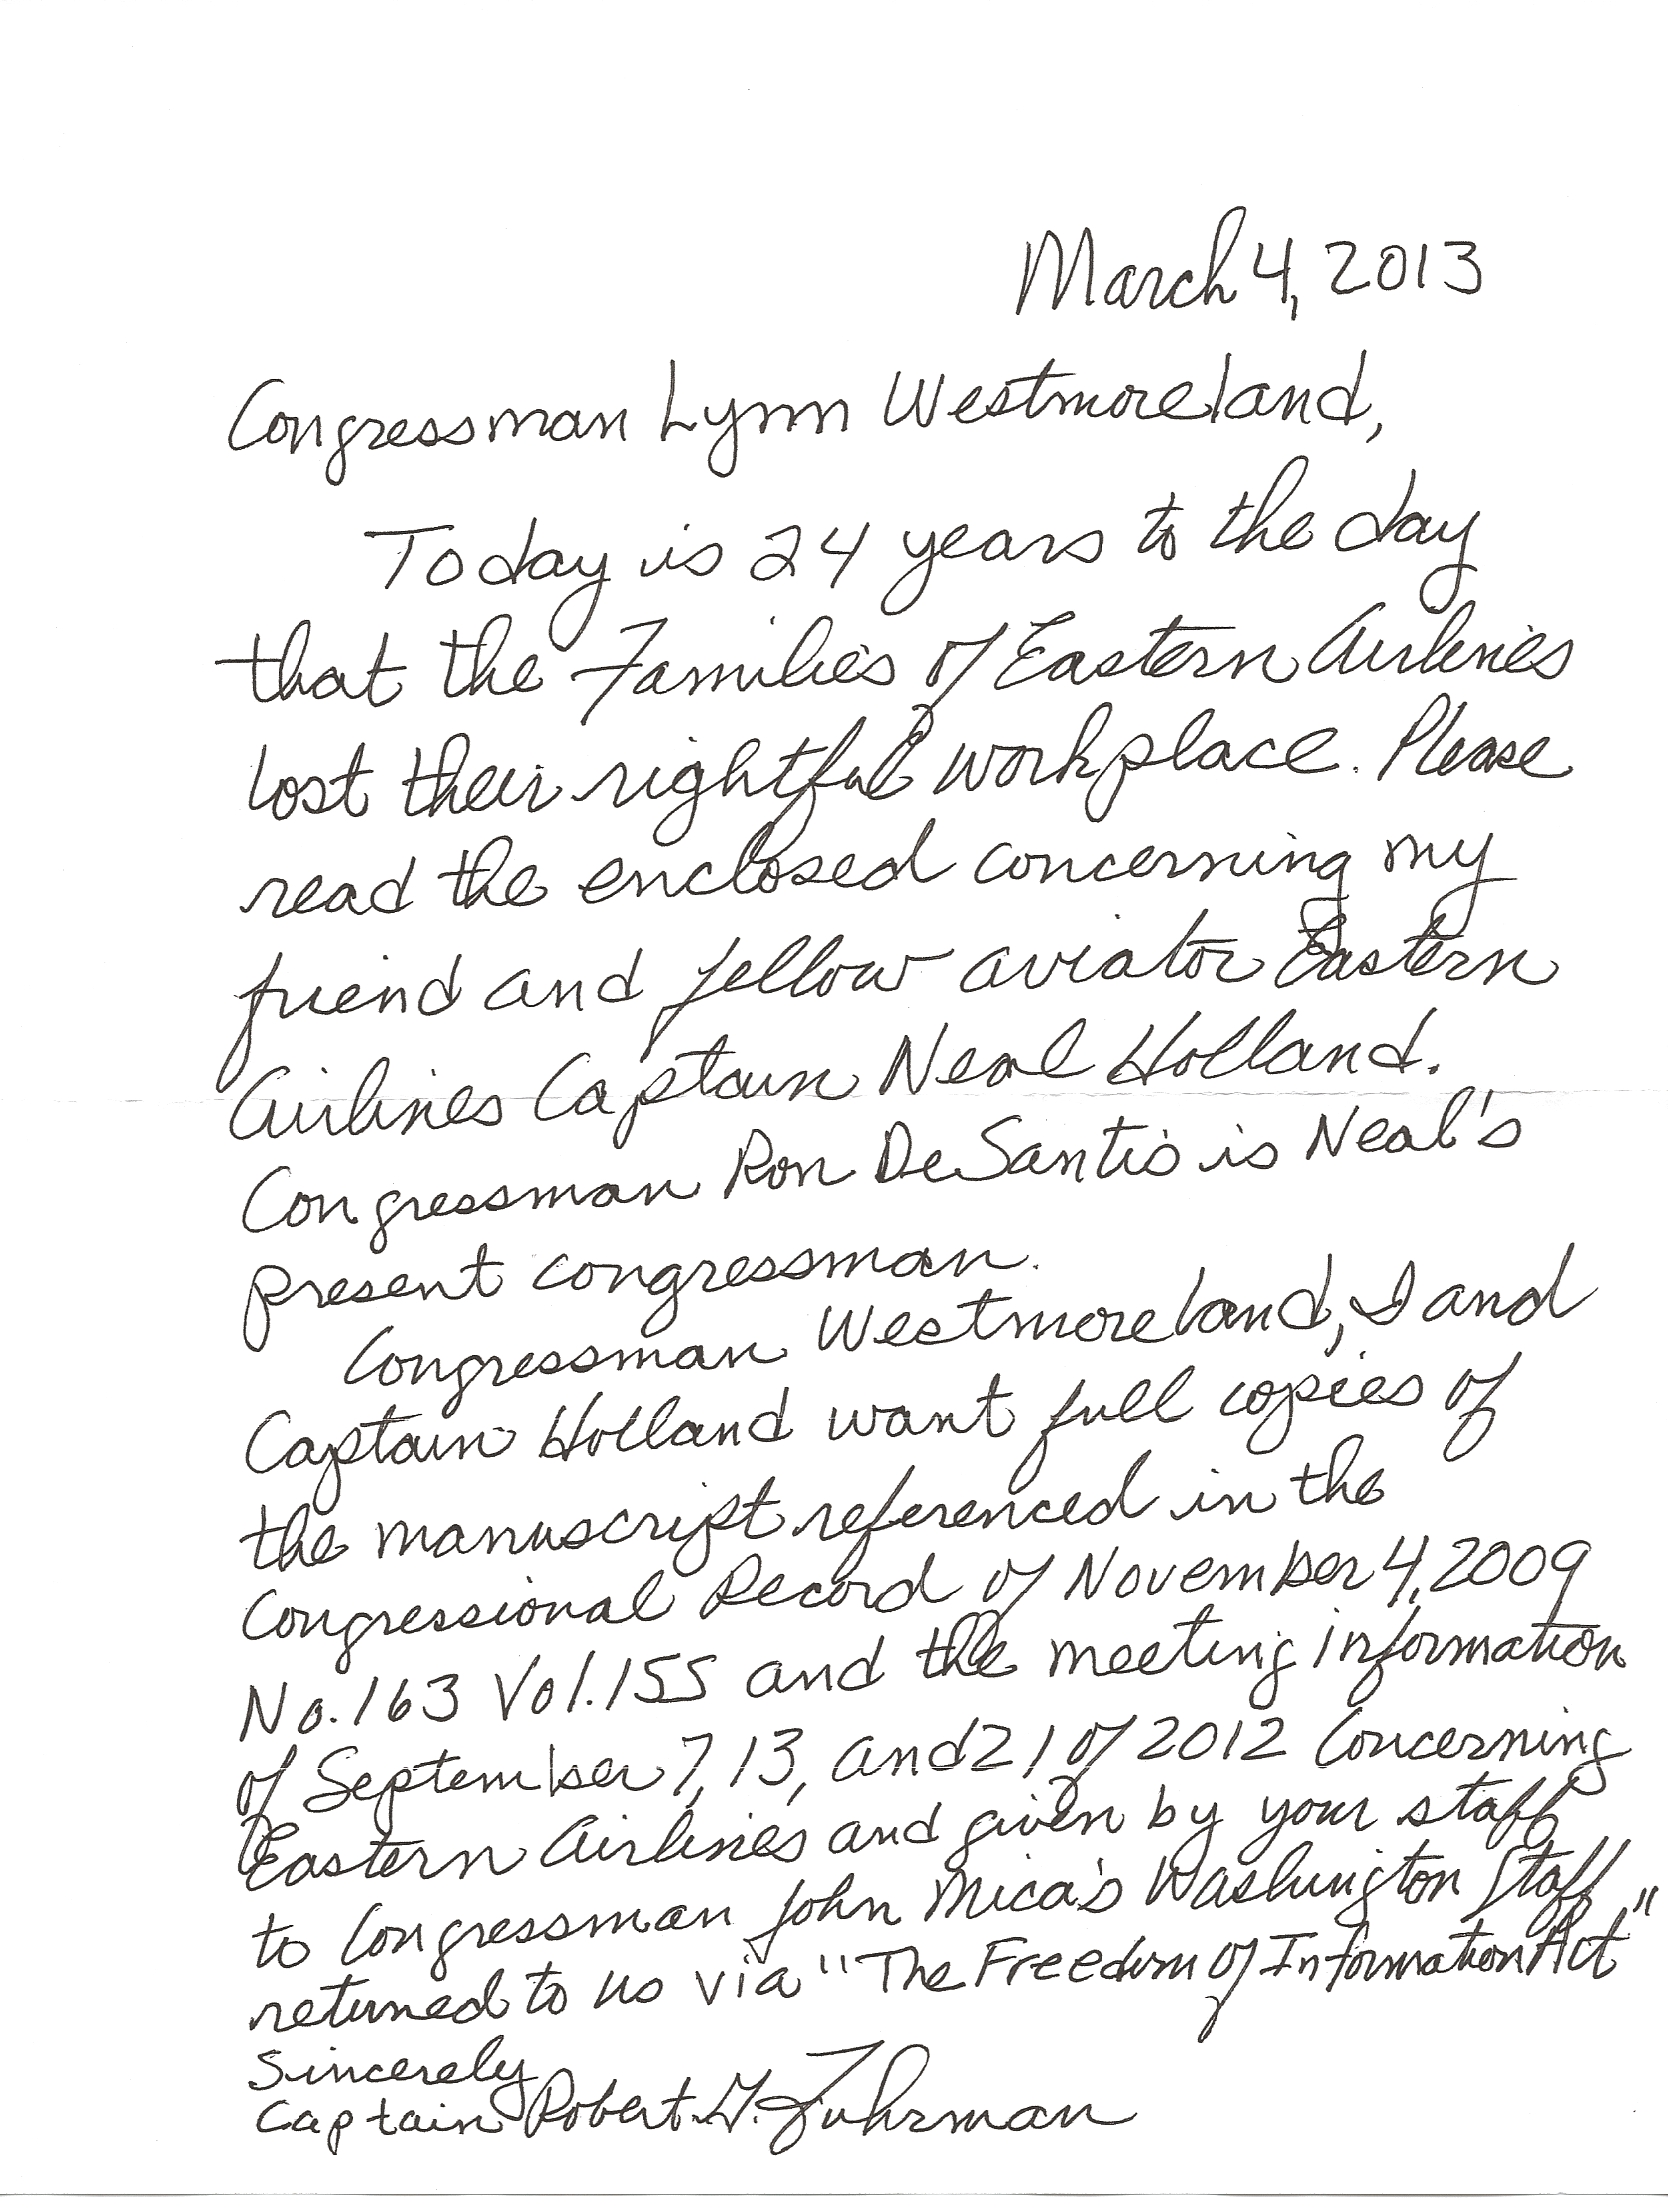 March 4, 2013
Congressman Lynn Westmoreland,
Today is 24 years to the day
that the Families of Eastern Airlines
lost their rightful workplace. Please
read the enclosed concerning my
friend and fellow aviator Eastern
Airlines Captain Neal Holland.
Congressman Ron DeSantis is Neal's
present congressman.
Congressman Westmoreland, I and
Captain Holland want full copies of
the manuscript referenced in the
Congressional Record of November 4, 2009
No. 163 Vol. 155 and the meeting information
of September 7, 13, and 21 of 2012 concerning
Eastern Airlines and given by your staff
to Congressman John Mica's Washington Staff
returned to us via "The Freedom of Information Act"
Sincerely
Captain Robert G. Fuhrman